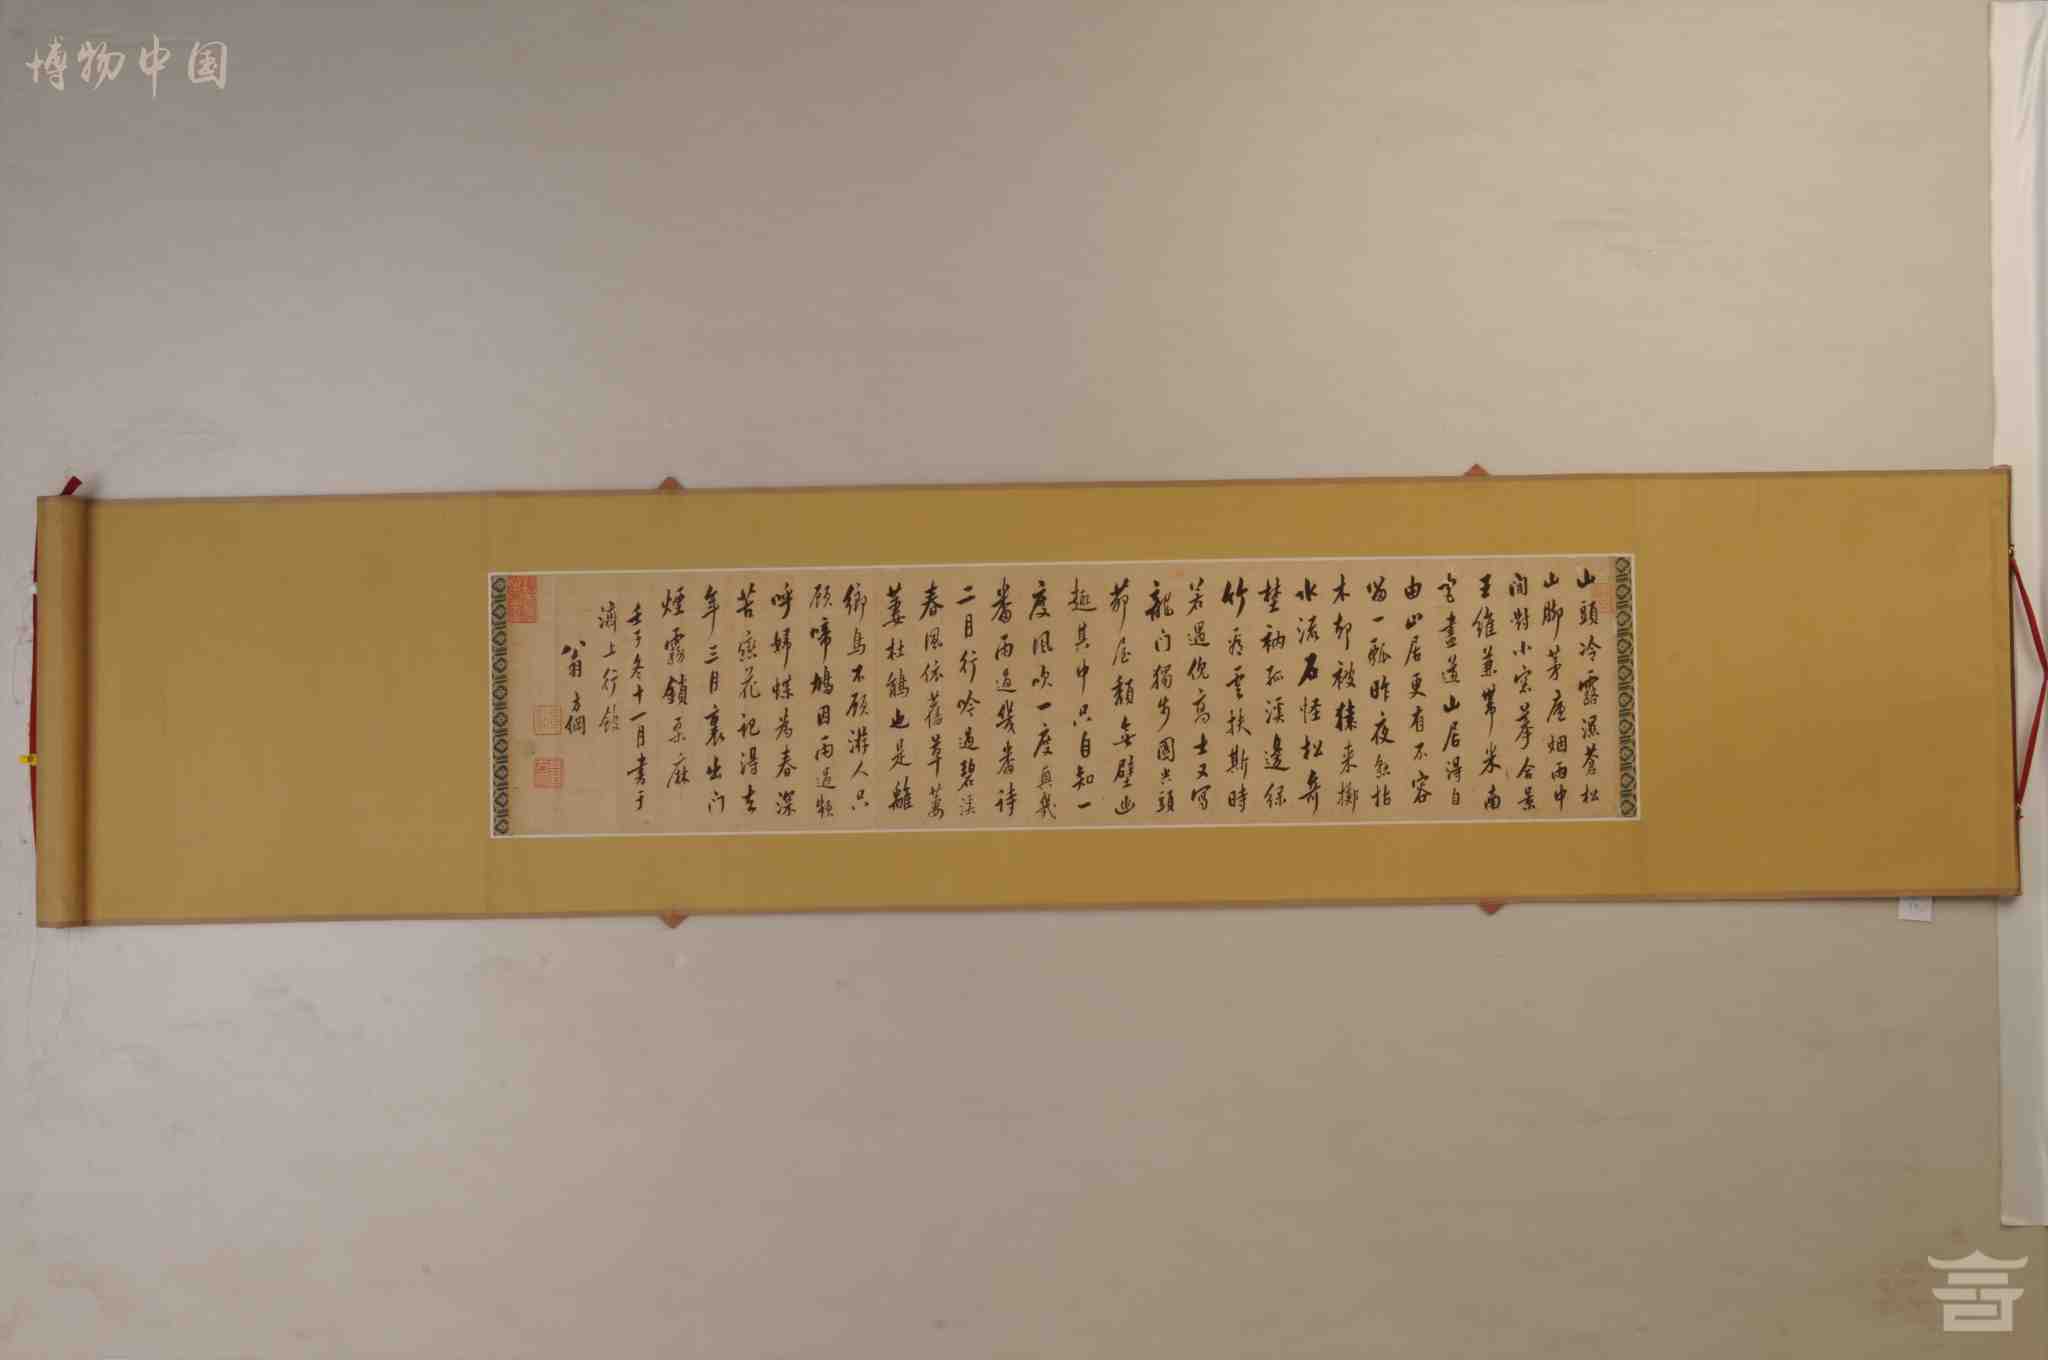 博物中国
山頭冷露濕蒼松
山脚茅庵烟雨中
閒對小窓摹合景
王維兼帶米南
宮畫道山居得自
由山居更有不容
留一瓢昨夜無枯
木却被猿来擲
水流石怪松奇
楚衲孤溪邊緑
竹看雲扶斯時
若遇倪高士又寫
龍门獨步圖尖頭
茆屋頽無壁幽
趣其中只自知一
度風吹一度真幾
番雨過幾番詩
二月行吟過碧溪
春風依舊草萋
萋杜鵑也是離
鄉鳥不顧游人只
顧啼鳩因雨過頻
呼婦蝶為春深
苦戀花記得去
年三月裏出门
煙霧鎖桑麻
壬子冬十一月書于
濟上行館
翁方綱